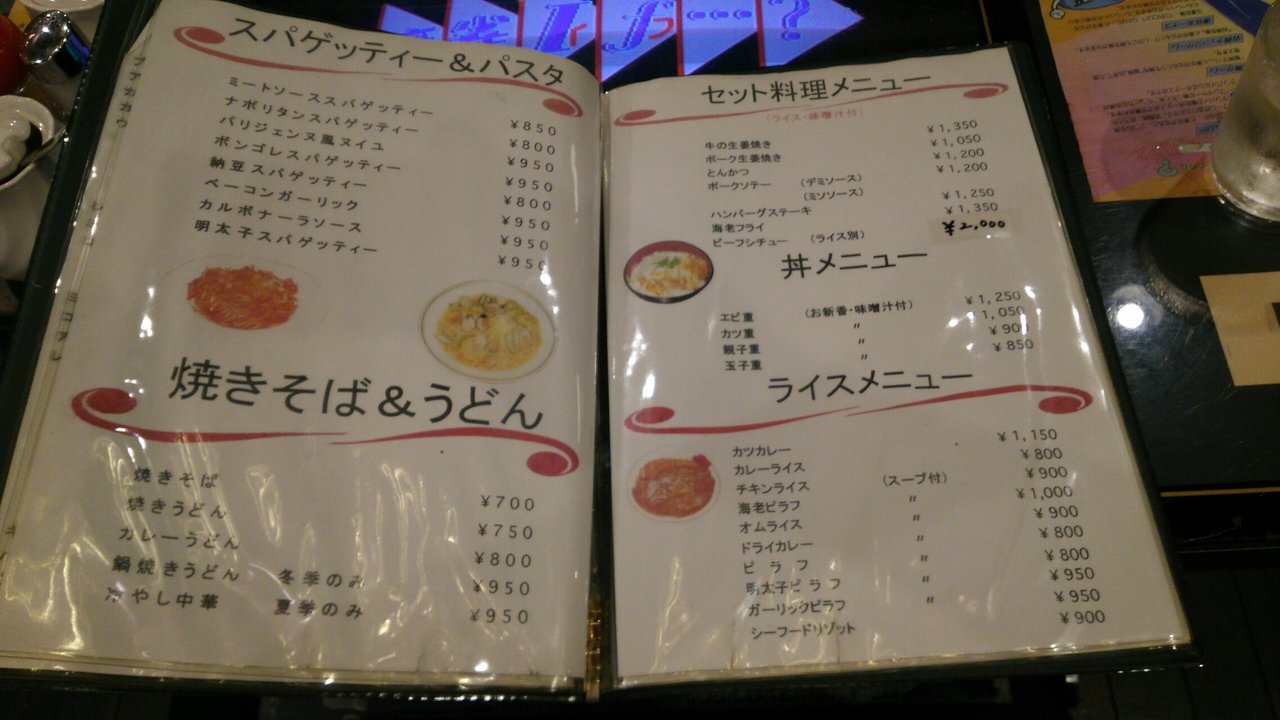 スパゲッティー＆パスタ
ミートソーススパゲッティー ¥850
ナポリタンスパゲッティー ¥800
パリジェンヌ風ヌイユ ¥950
ボンゴレスパゲッティー ¥950
納豆スパゲッティー ¥800
ベーコンガーリック ¥950
カルボナーラソース ¥950
明太子スパゲッティー ¥950
焼きそば＆うどん
焼きそば ¥700
焼きうどん ¥750
カレーうどん ¥800
鍋焼きうどん 冬季のみ ¥950
冷やし中華 夏季のみ ¥950
If…?
セット料理メニュー
(ライス・味噌汁付)
牛の生姜焼き ¥1,350
ポーク生姜焼き ¥1,050
とんかつ ¥1,200
ポークソテー (デミソース) ¥1,200
(ミソソース)
ハンバーグステーキ ¥1,250
海老フライ ¥1,350
ビーフシチュー (ライス別) ¥2,000
丼メニュー
エビ重 (お新香・味噌汁付) ¥1,250
カツ重 〃 ¥1,050
親子重 〃 ¥900
玉子重 〃 ¥850
ライスメニュー
カツカレー ¥1,150
カレーライス ¥800
チキンライス (スープ付) ¥900
海老ピラフ 〃 ¥1,000
オムライス 〃 ¥900
ドライカレー ¥800
ピラフ 〃 ¥800
明太子ピラフ 〃 ¥950
ガーリックピラフ 〃 ¥950
シーフードリゾット ¥900